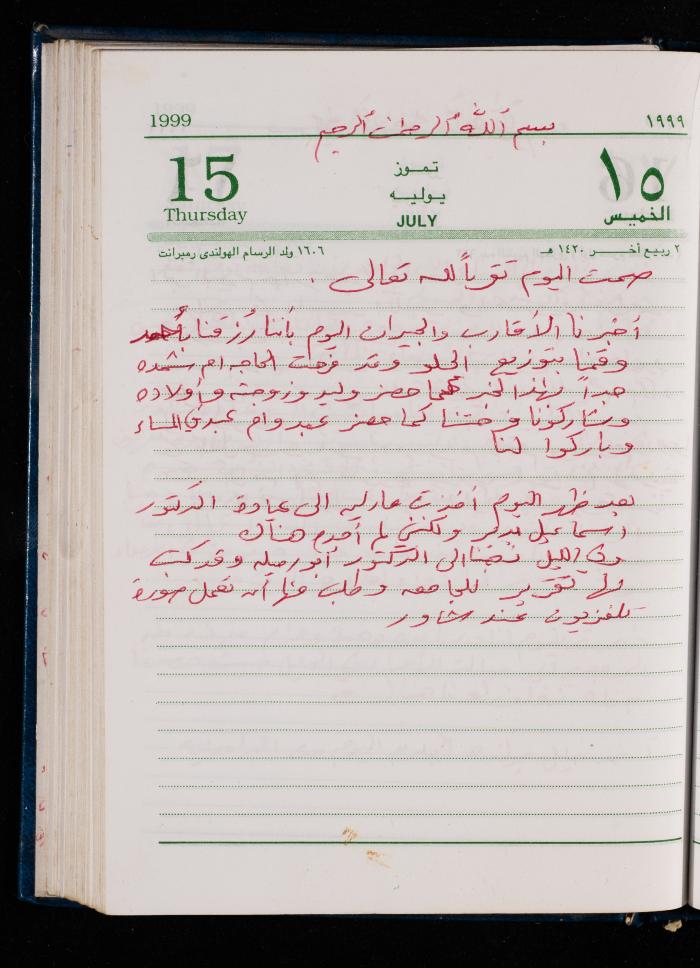 1999 بسم الله الرحمن الرحيم ١٩٩٩
15 تموز ١٥
Thursday يوليه الخميس
JULY
٢ ربيع آخر ١٤٢٠ هـ ١٦٠٦ ولد الرسام الهولندى رمبرانت
صمت اليوم تقرباً لله تعالى .
أخبرنا الأقارب والجيران اليوم بأننا رُزقنا بأحمد
وقمنا بتوزيع الحلو وقد فرحت الحاجه ام رشده
جداً بهذا الخبر كما حضر وليد وزوجته وأولاده
وشاركونا فرحتنا كما حضر عبد وام عبد في المساء
وباركوا لنا
بعد ظهر اليوم أخذت عادليه الى عيادة الدكتور
اسماعيل ولكنني لم أجده هناك
وفي الليل ذهبنا الى الدكتور أبو رميله وقد كتب
لها تقرير للجامعه وطلب منها أن تعمل صورة
تلفزيون عند شاور